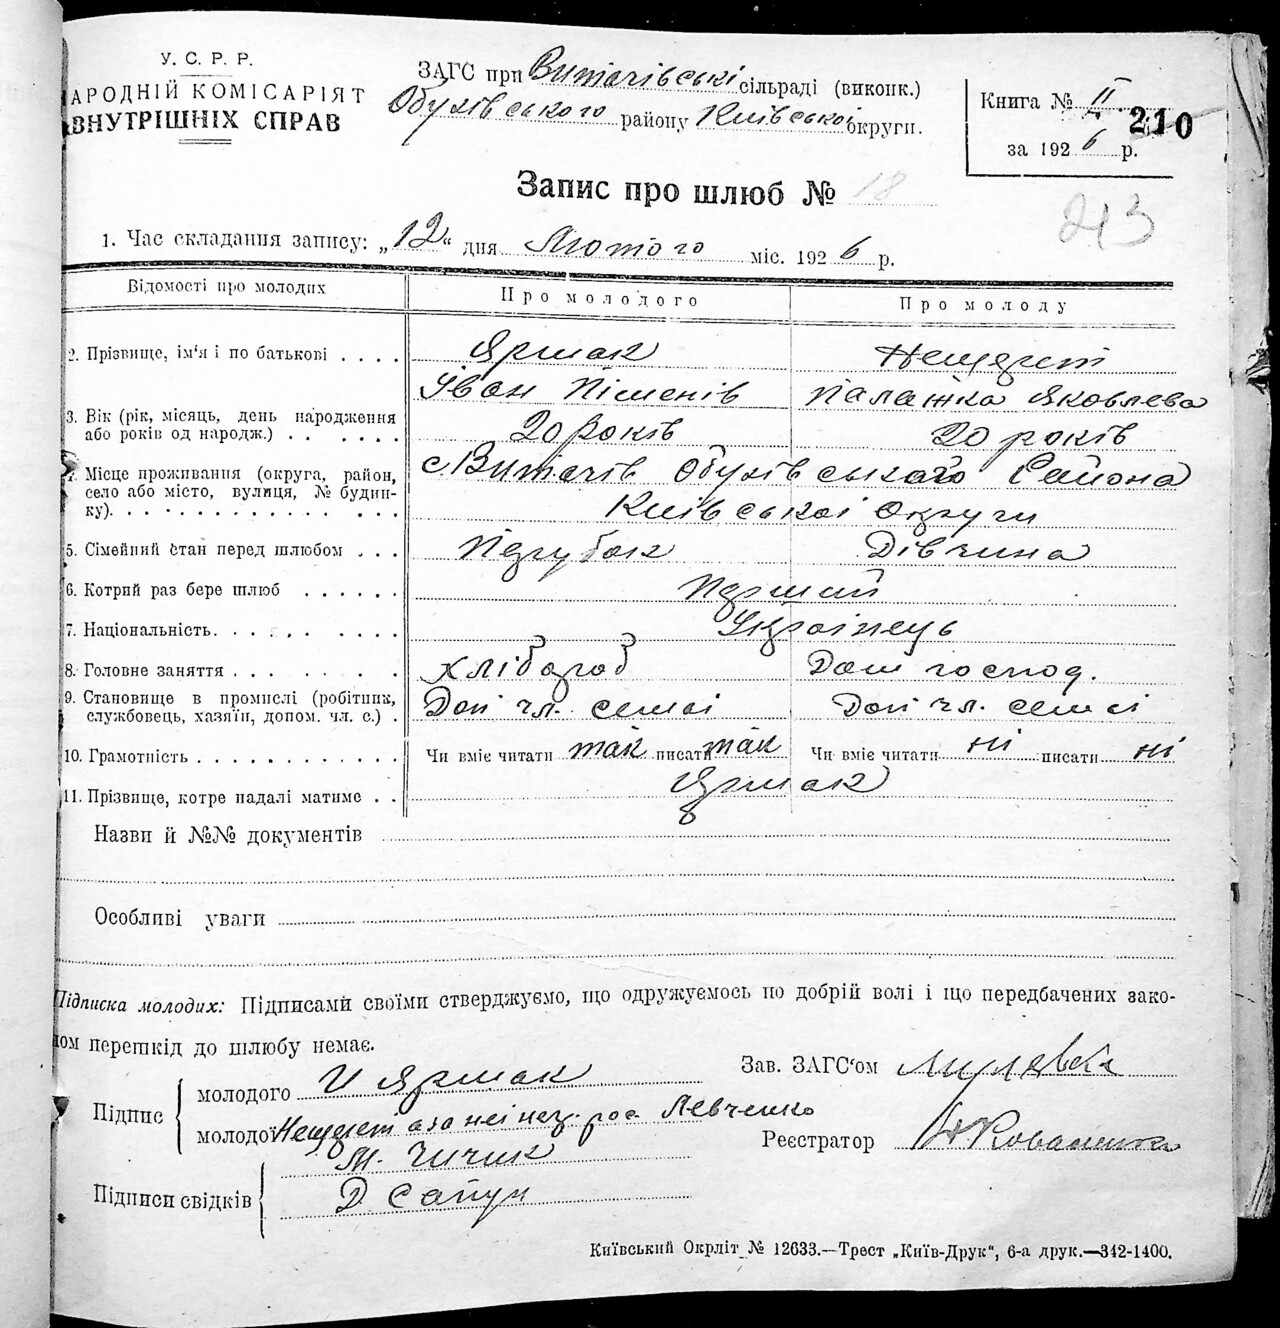 У. С. Р. Р.
НАРОДНІЙ КОМІСАРІЯТ
ВНУТРІШНІХ СПРАВ
ЗАГС при Витачівські сільраді (виконк.)
Обухівського району Київської округи.
Книга № II
210
за 1926 р.
Запис про шлюб № 18
213
1. Час складання запису: „12“ дня Лютого міс. 1926 р.
Відомості про молодих Про молодого Про молоду
2. Прізвище, ім'я і по батькові . . . . Ярмак Нещерет
Іван Піменів Палажка Яковлева
3. Вік (рік, місяць, день народження
або років од народж.) . . . . . . 20 років 20 років
4. Місце проживання (округа, район,
село або місто, вулиця, № будин-
ку). . . . . . . . . . . . . . . .
с. Витачів Обухівського Района
Київської Округи
5. Сімейний стан перед шлюбом . . . Парубок Дівчина
6. Котрий раз бере шлюб . . . . . . Перший
7. Національність. . . . . . . . . . Українець
8. Головне заняття . . . . . . . . Хлібороб Дом господ.
9. Становище в промислі (робітник,
службовець, хазяїн, допом. чл. с.) . Доп чл. семьі Доп чл. семьі
10. Грамотність . . . . . . . . . . . . Чи вміє читати так писати так Чи вміє читати ні писати ні
11. Прізвище, котре надалі матиме . . Ярмак
Назви й №№ документів
Особливі уваги
Підписка молодих: Підписами своїми стверджуємо, що одружуємось по добрій волі і що передбачених зако-
ном перешкід до шлюбу немає.
Підпис
молодого И Ярмак
молодої Нещерет а за неї нег. рос. Левченко
Підписи свідків
М. Чичик
Д. Сапун
Зав. ЗАГС'ом
Реєстратор Коваленко
Київський Окрліт № 12633.—Трест „Київ-Друк“, 6-а друк.—342-1400.